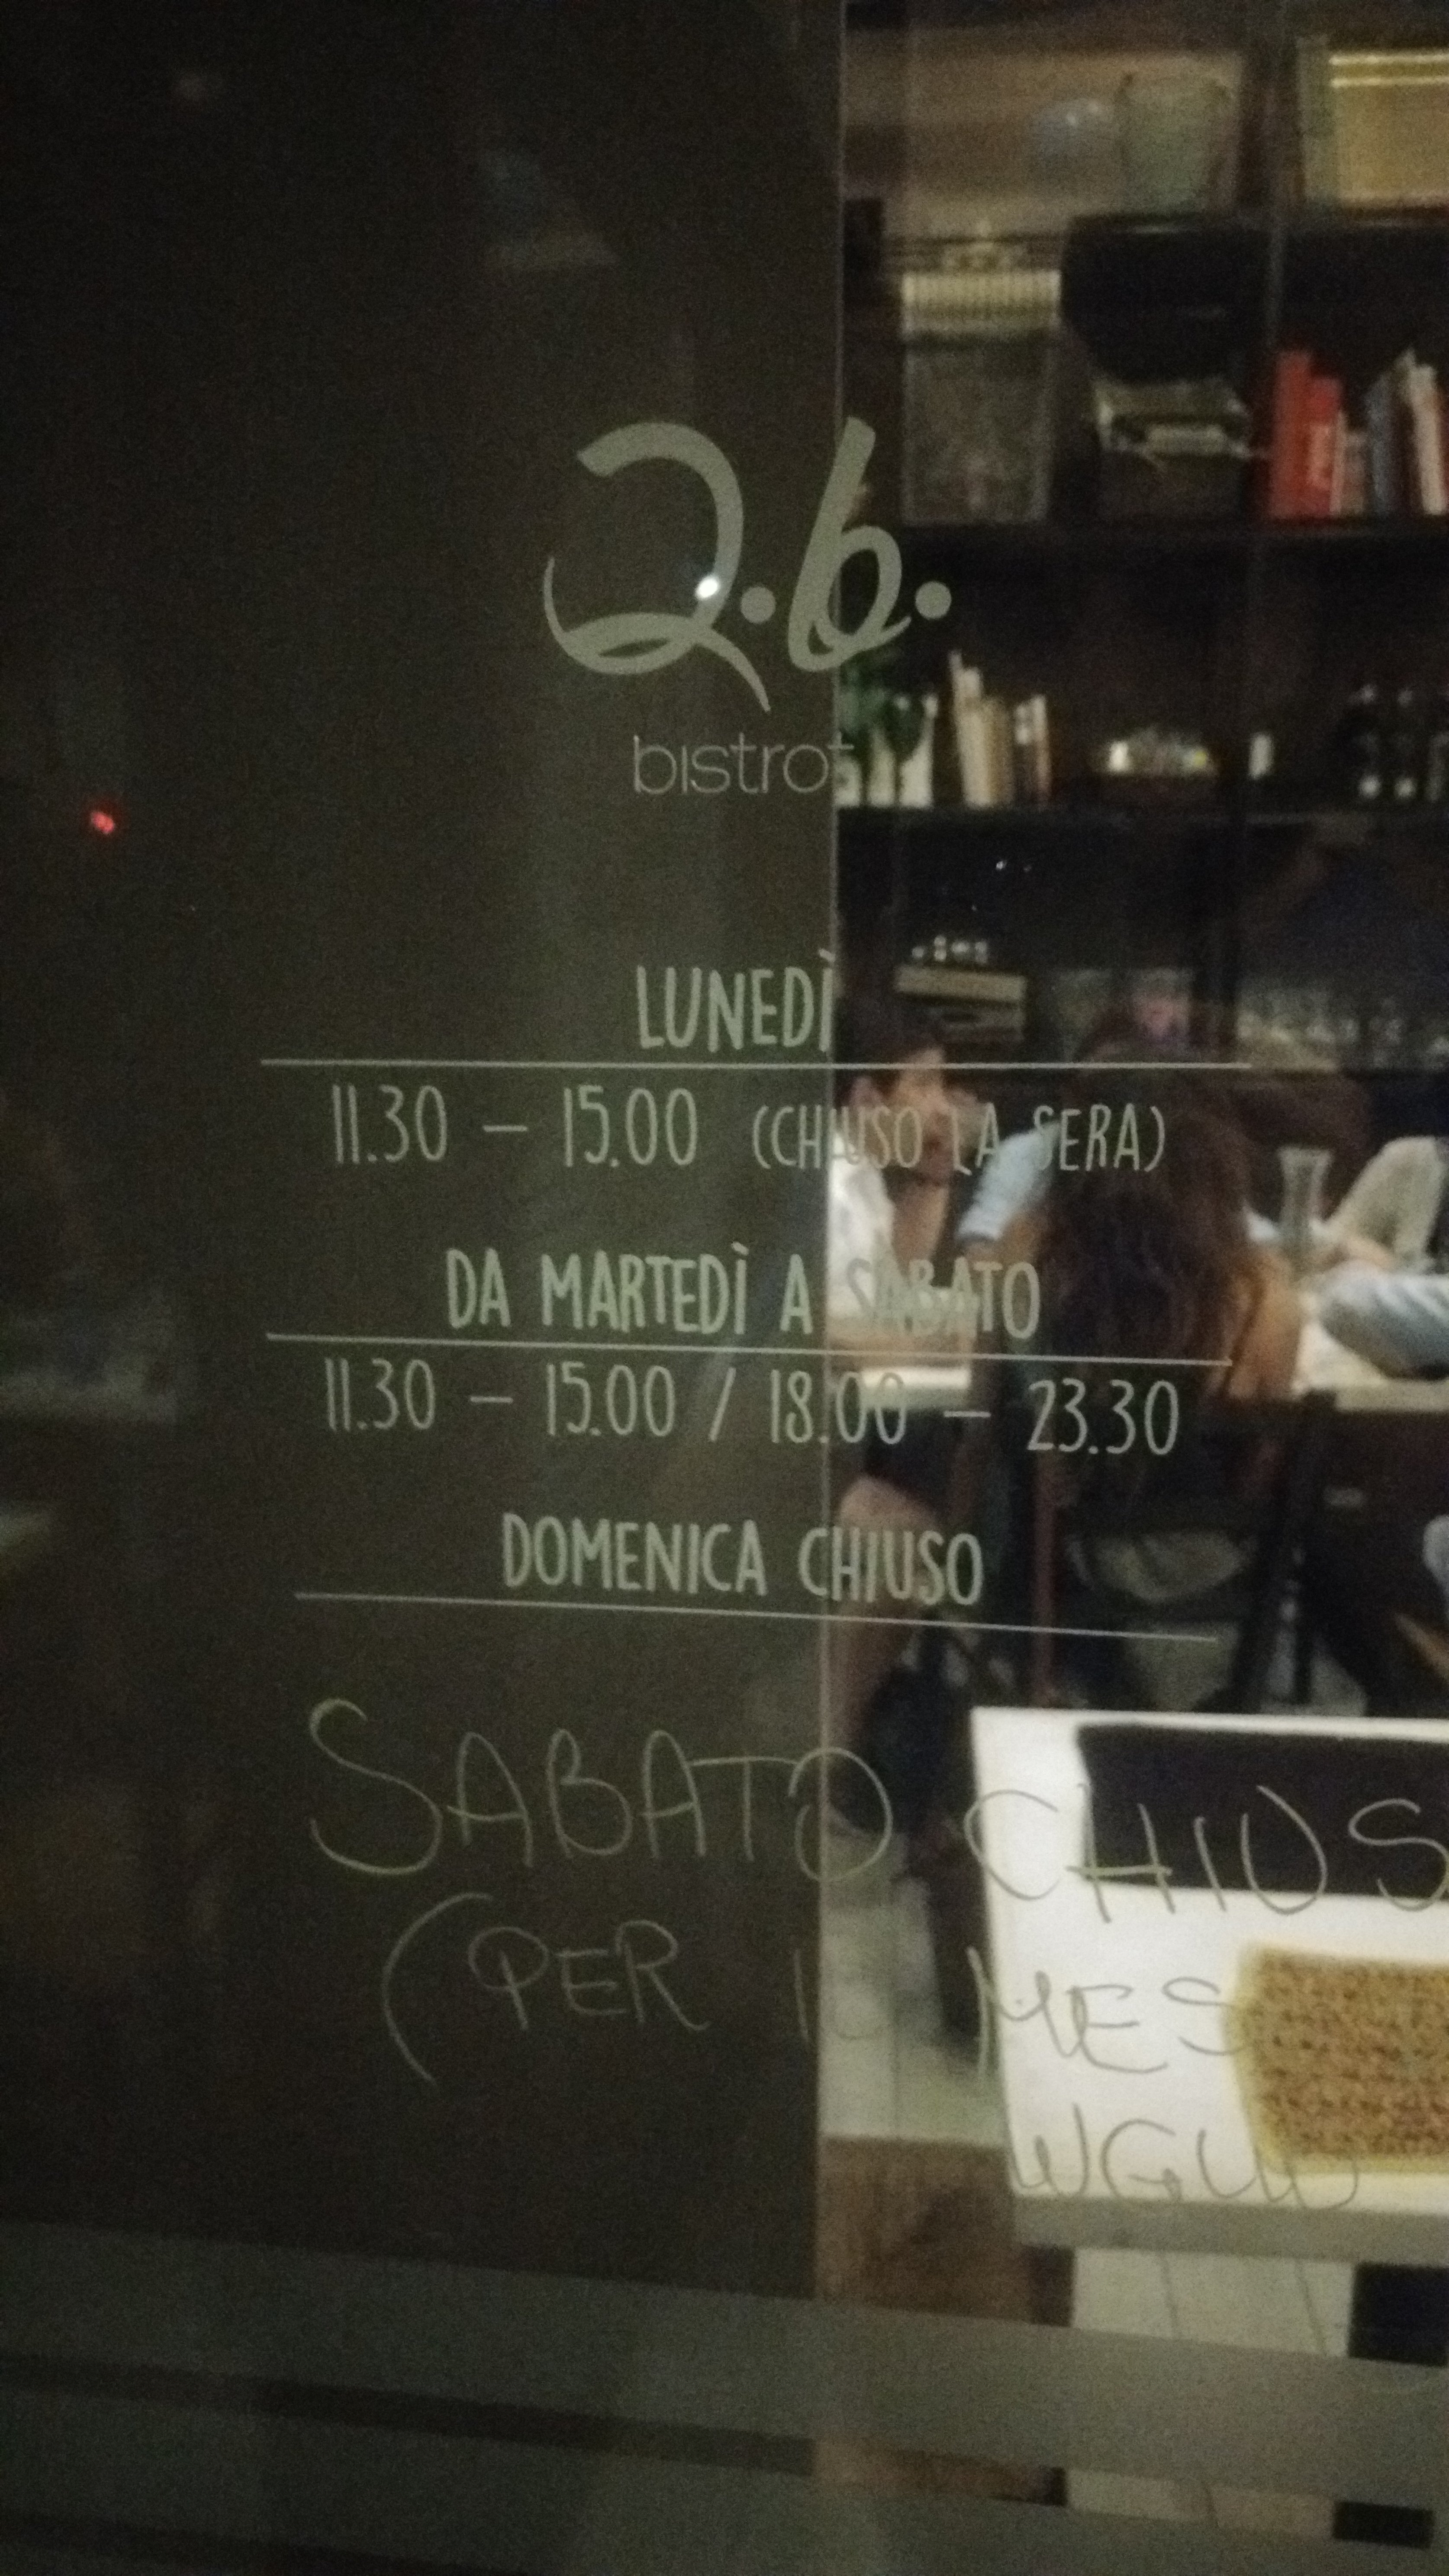 Q.b.
bistrot
LUNEDÌ
11.30 – 15.00 (CHIUSO LA SERA)
DA MARTEDÌ A SABATO
11.30 – 15.00 / 18.00 – 23.30
DOMENICA CHIUSO
SABATO CHIUS
(PER IL MES
LUGLIO